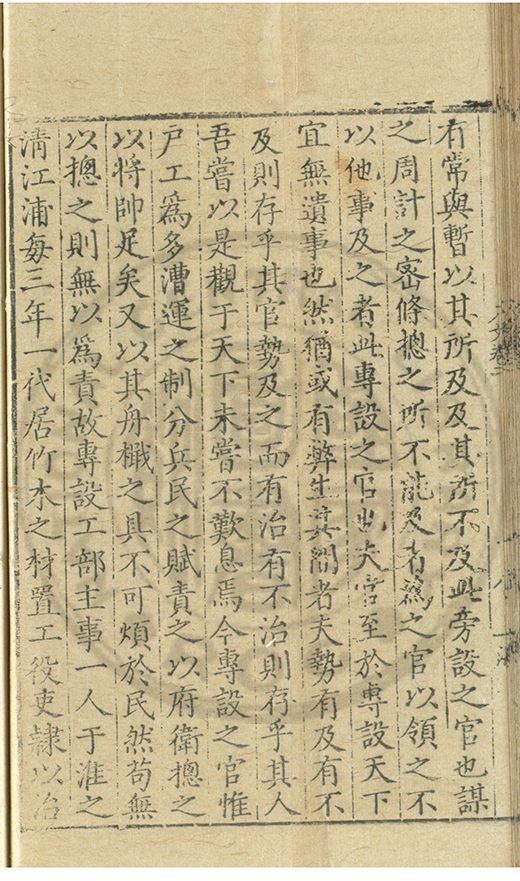 有常與暫以其所及及其所不及此旁設之官也謀
之周計之密條摠之所不能及者爲之官以領之不
以他事及之者此專設之官也夫官至於專設天下
宜無遺事也然猶或有弊生其間者夫勢有及有不
及則存乎其官勢及之而有治有不治則存乎其人
吾嘗以是觀于天下未嘗不歎息焉今專設之官惟
戸工爲多漕運之制分兵民之賦責之以府衛摠之
以將帥足矣又以其舟檝之具不可煩於民然苟無
以摠之則無以爲責故專設工部主事一人于淮之
清江浦每三年一代居竹木之材置工役吏隷以治